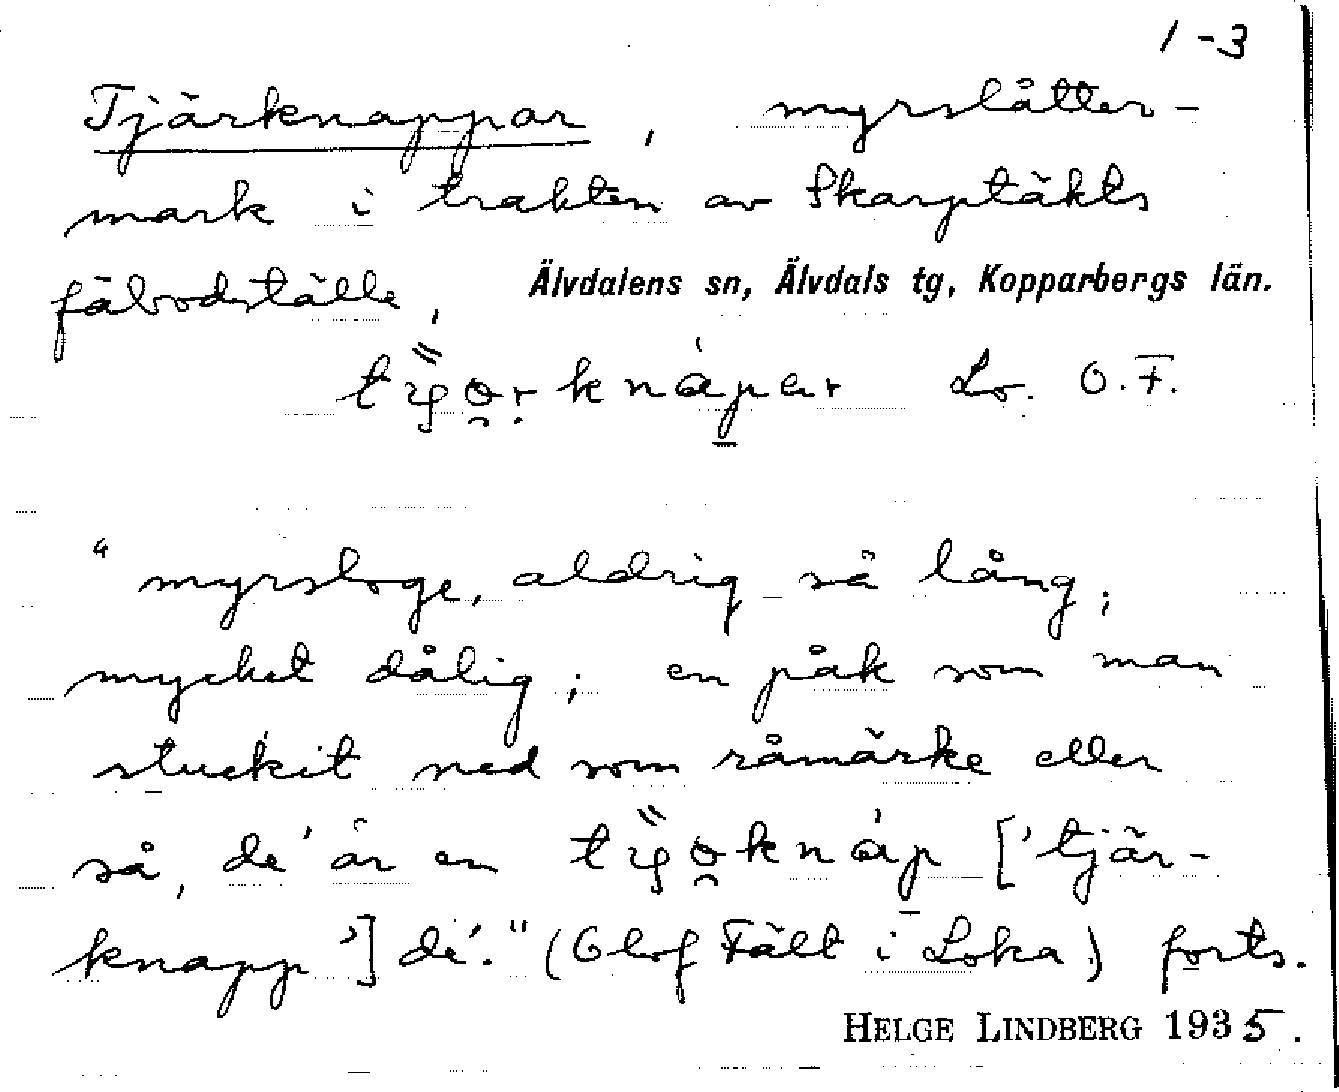 1-3
Tjärknappar, myrslåtter-
mark i trakten av Skarptäkts
fäbodställe, Älvdalens sn, Älvdals tg, Kopparbergs län.
Lo. O.F.
"myrsloge, aldrig så lång,
mycket dålig; en påk som man
stuckit ned som råmärke eller
så, de' är en ['tjär-
knapp'] de'." (Olof Fält i Loka) forts.
HELGE LINDBERG 1935.